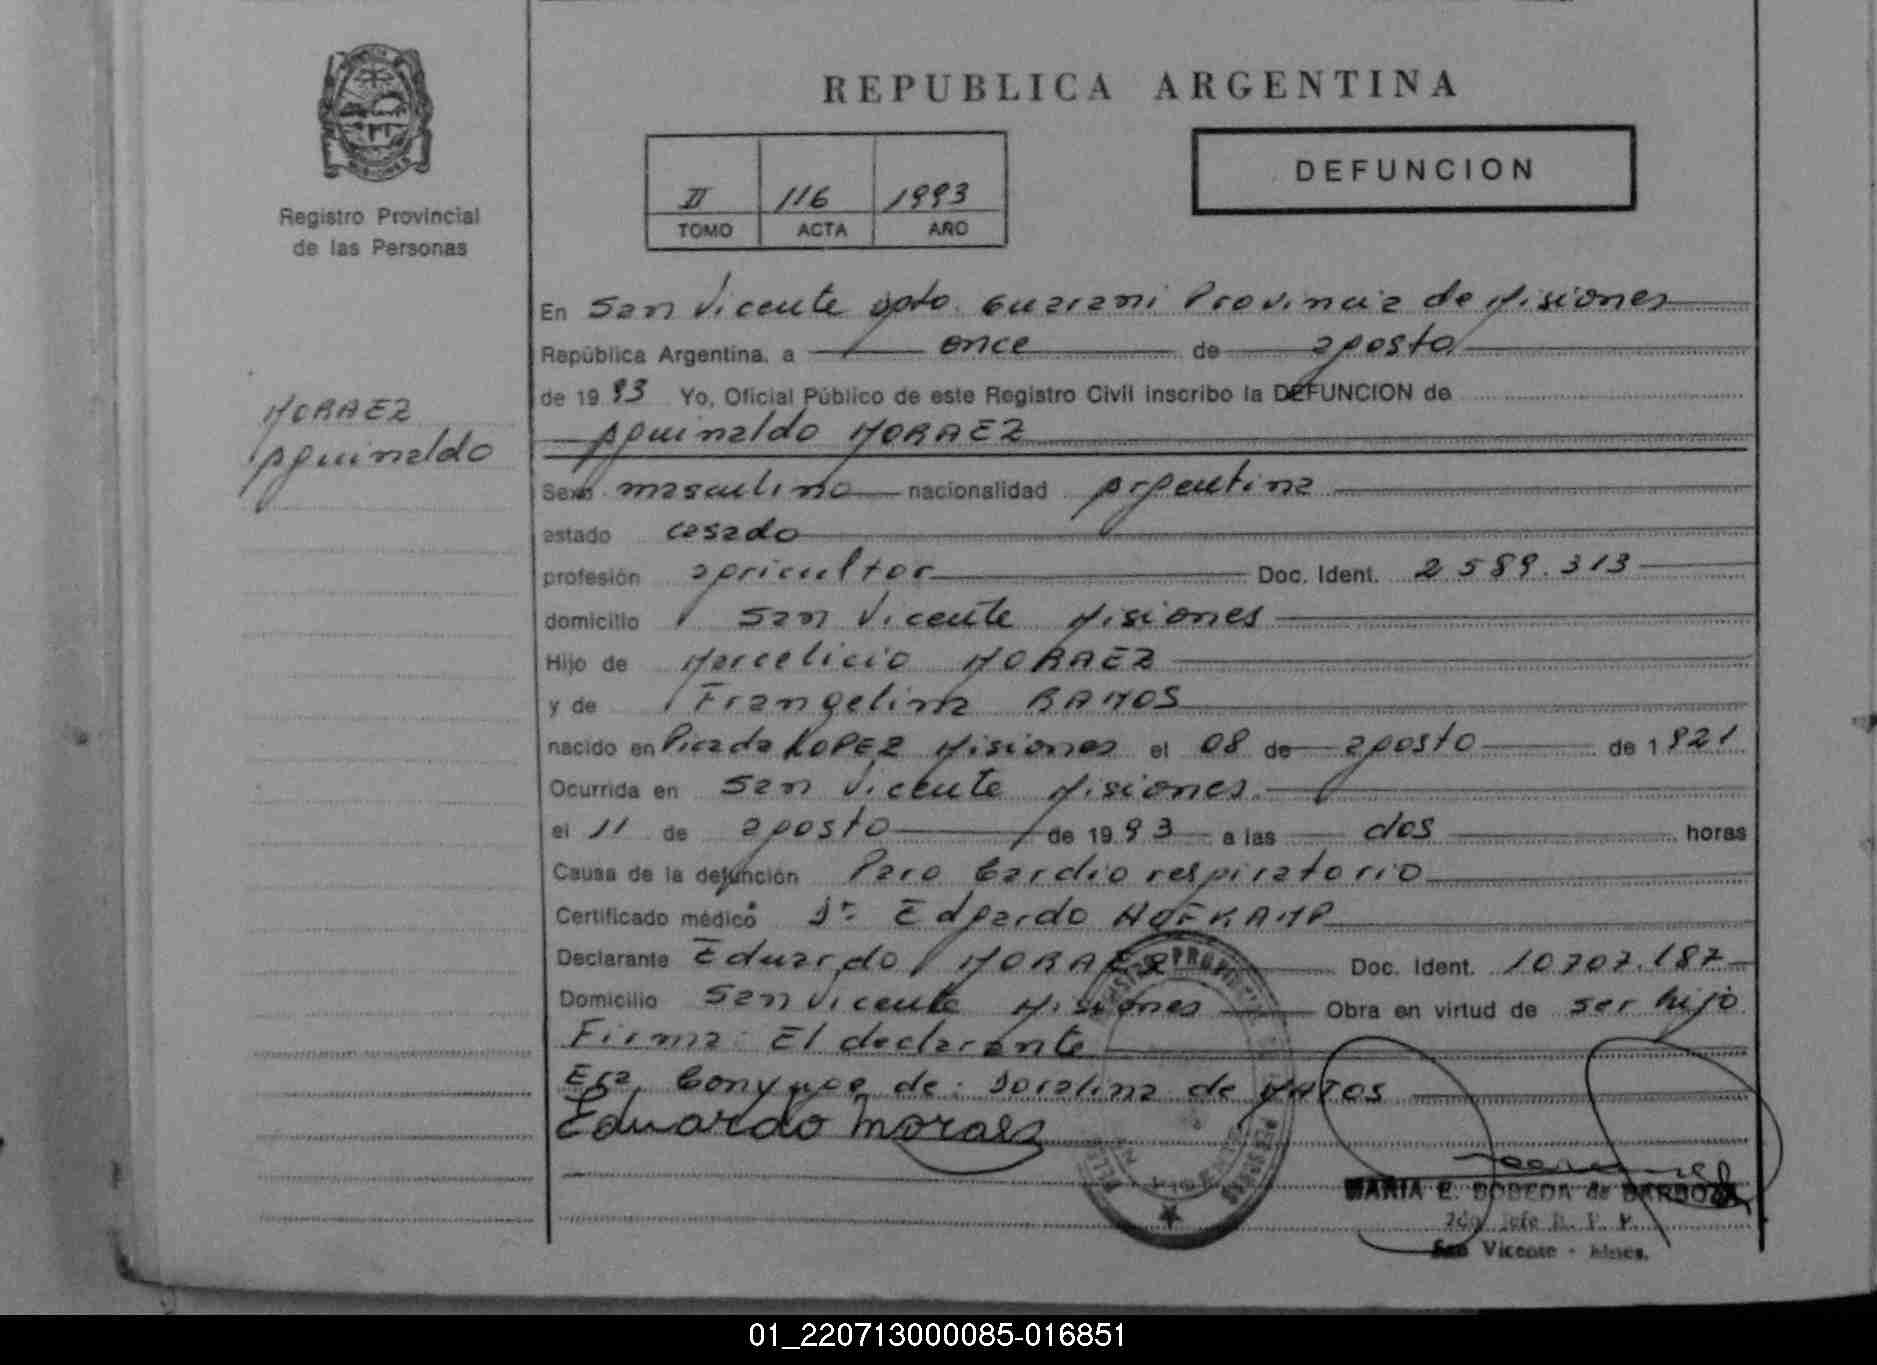 REPUBLICA ARGENTINA
DEFUNCION
II 116 1993
TOMO ACTA AÑO
Registro Provincial
de las Personas
MORAEZ
Aguinaldo
En San Vicente Dpto. Guarani Provincia de Misiones
República Argentina, a once de agosto
de 1993 Yo, Oficial Público de este Registro Civil inscribo la DEFUNCION de
Aguinaldo MORAEZ
Sexo masculino nacionalidad Argentina
estado casado
profesión agricultor Doc. Ident. 2589.313
domicilio San Vicente Misiones
Hijo de Marcelicio MORAEZ
y de Frangelina RAMOS
nacido en Picada LOPEZ Misiones el 08 de agosto de 1921
Ocurrida en San Vicente Misiones.
el 11 de agosto de 1993 a las dos horas
Causa de la defunción Paro Cardio respiratorio
Certificado médico Dr. Edgardo HOFKAMP
Declarante Eduardo MORAEZ Doc. Ident. 10.707.187
Domicilio San Vicente Misiones Obra en virtud de ser hijo
Firma: El declarante
Era Conyuge de: Doralina de MATOS
Eduardo Moraez
MARIA E. BOBEDA de BARBOZA
2do. Jefe R. P. P.
San Vicente - Mnes.
01_220713000085-016851